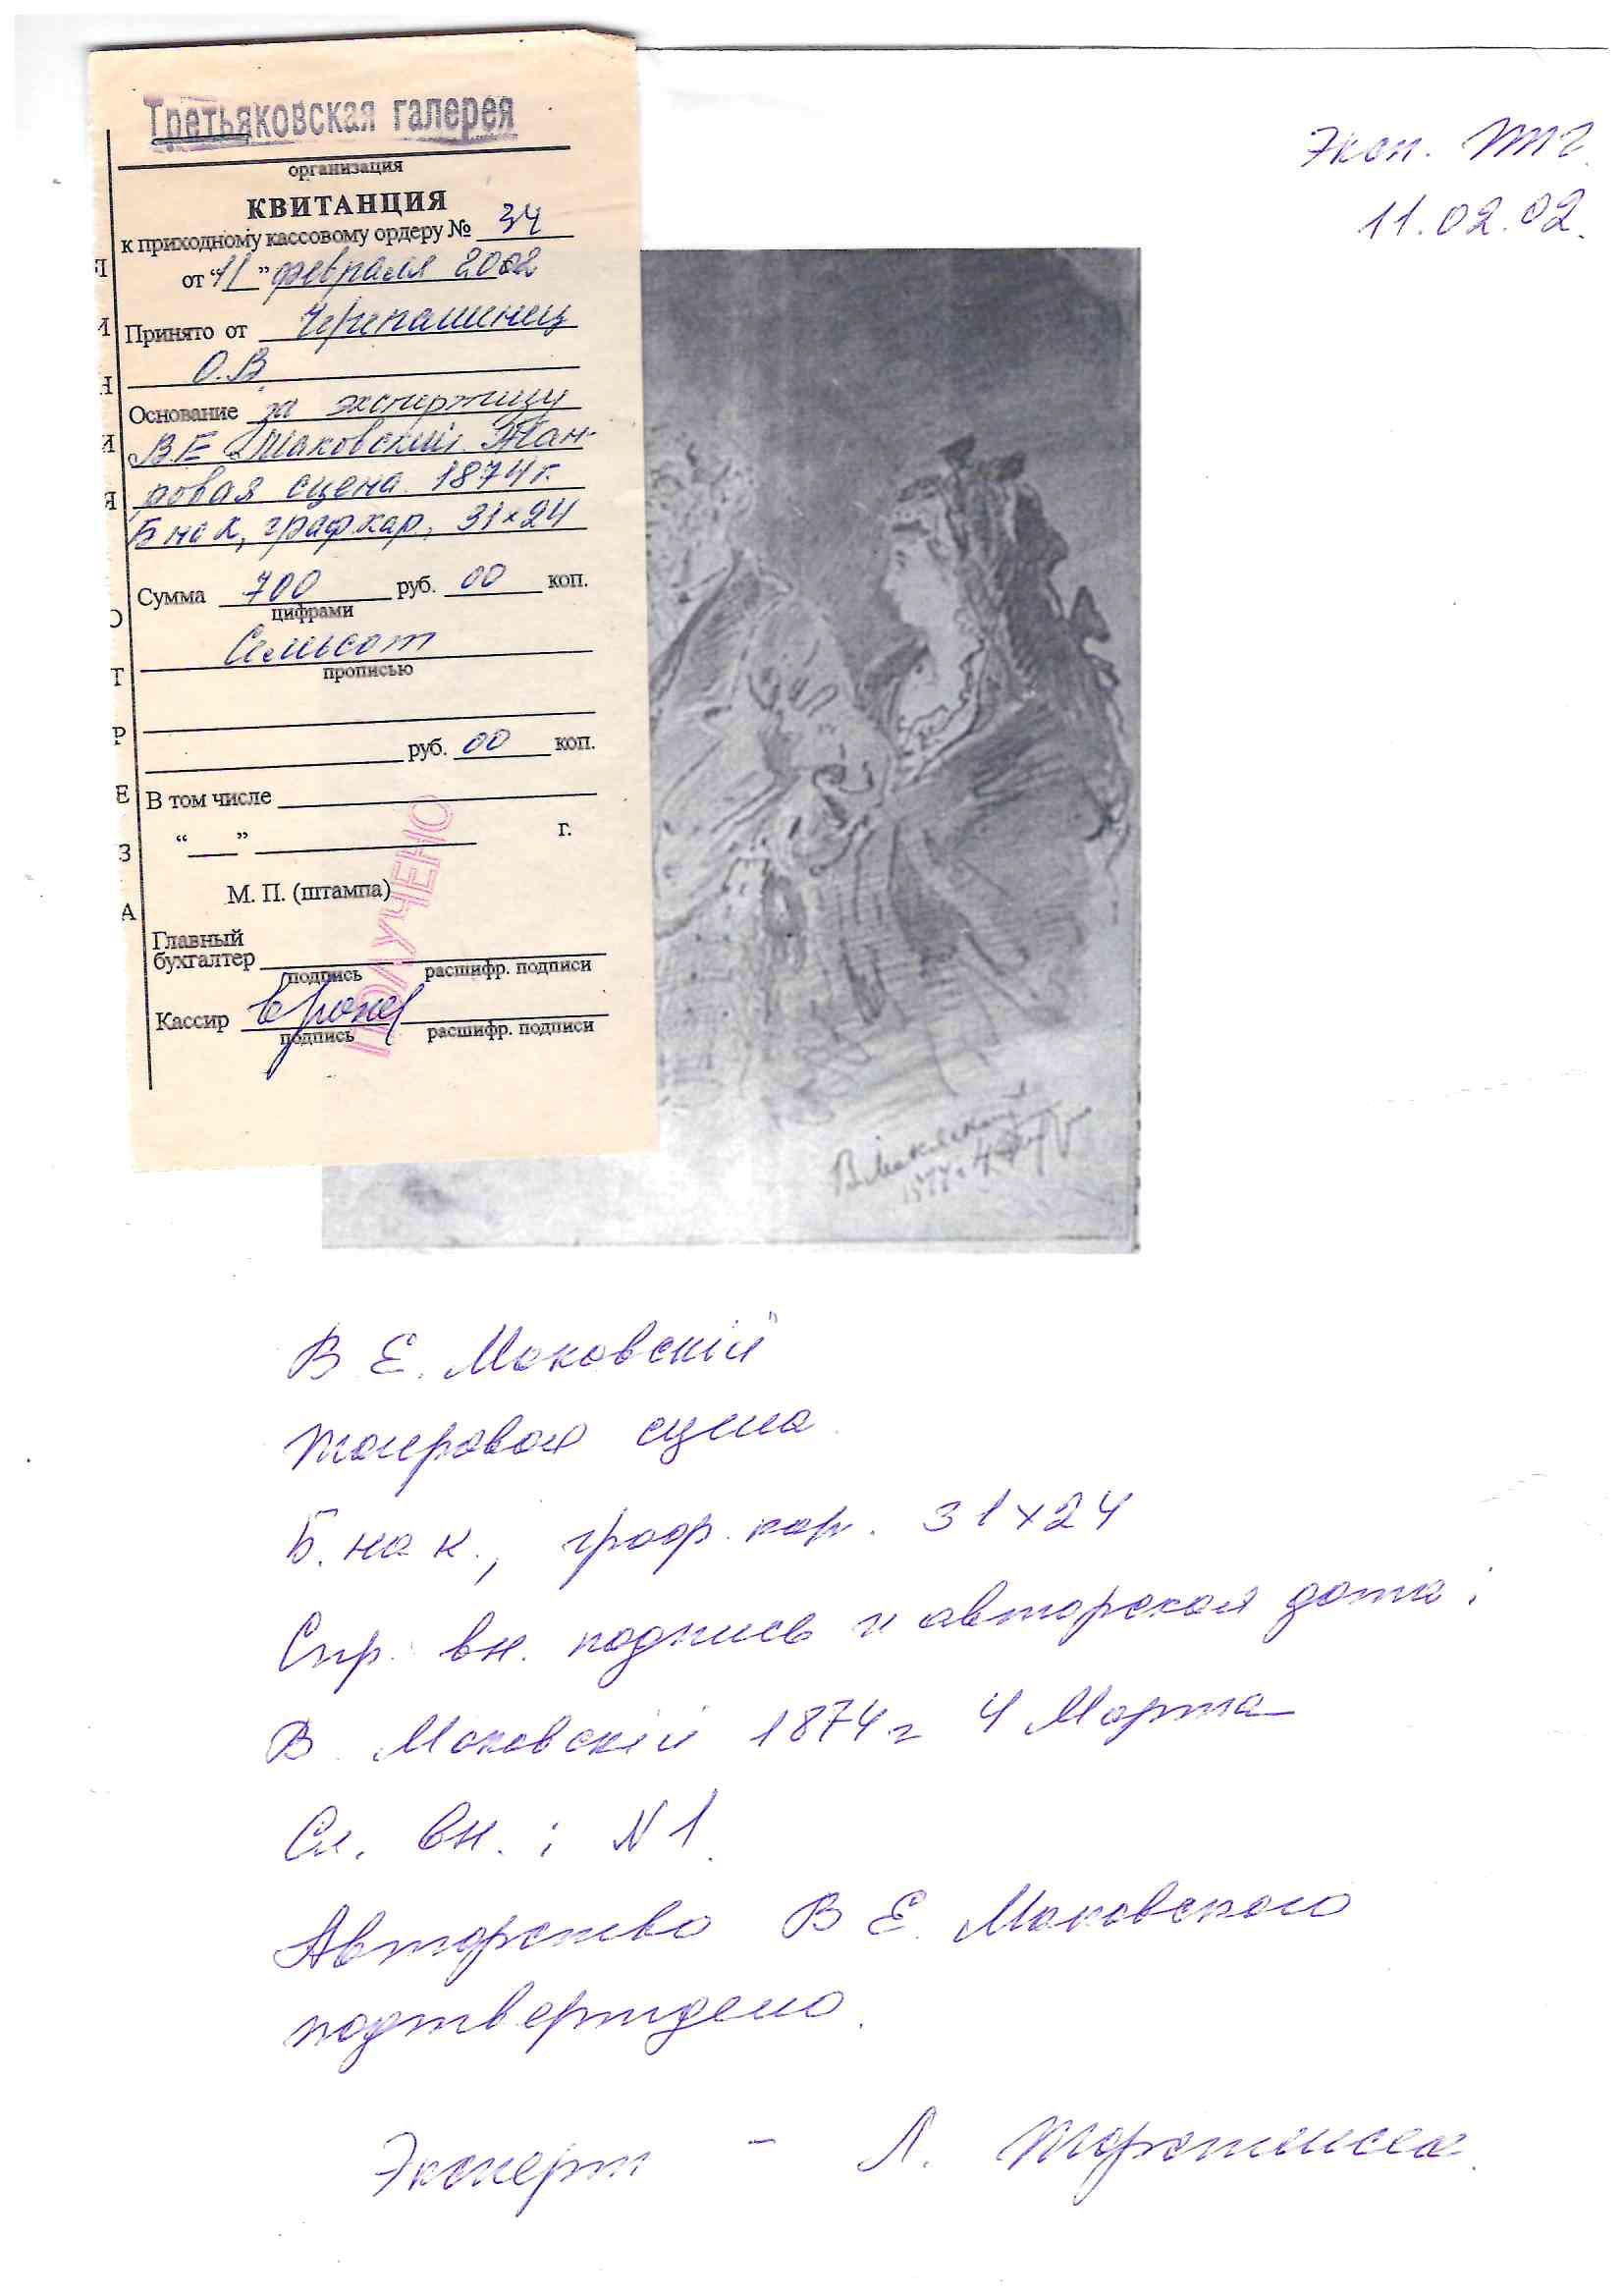 Третьяковская галерея
организация
КВИТАНЦИЯ
к приходному кассовому ордеру № 34
от “11” февраля 2002
Принято от Черепашинец
О.В.
Основание за экспертизу
В.Е Маковский. Жан-
ровая сцена. 1874 г.
Б на к, граф кар, 31×24
Сумма 700 руб. 00 коп.
цифрами
Семьсот
прописью
руб. 00 коп.
В том числе
“ ” г.
М. П. (штампа)
ПОЛУЧЕНО
Главный
бухгалтер
подпись расшифр. подписи
Кассир
подпись расшифр. подписи
Я
И
Н
И
Я
О
Т
Р
Е
З
А
Эксп. ТГ.
11.02.02.
В Маковский
1874 г 4 Марта
В Е. Маковскій
Жанровая сцена.
Б. на к., граф. кар. 31×24
Спр. вн. подпись и авторская дата:
В. Маковскій 1874 г 4 Марта
Сл. вн.: N 1.
Авторство В Е. Маковского
подтверждено.
Эксперт - Л.